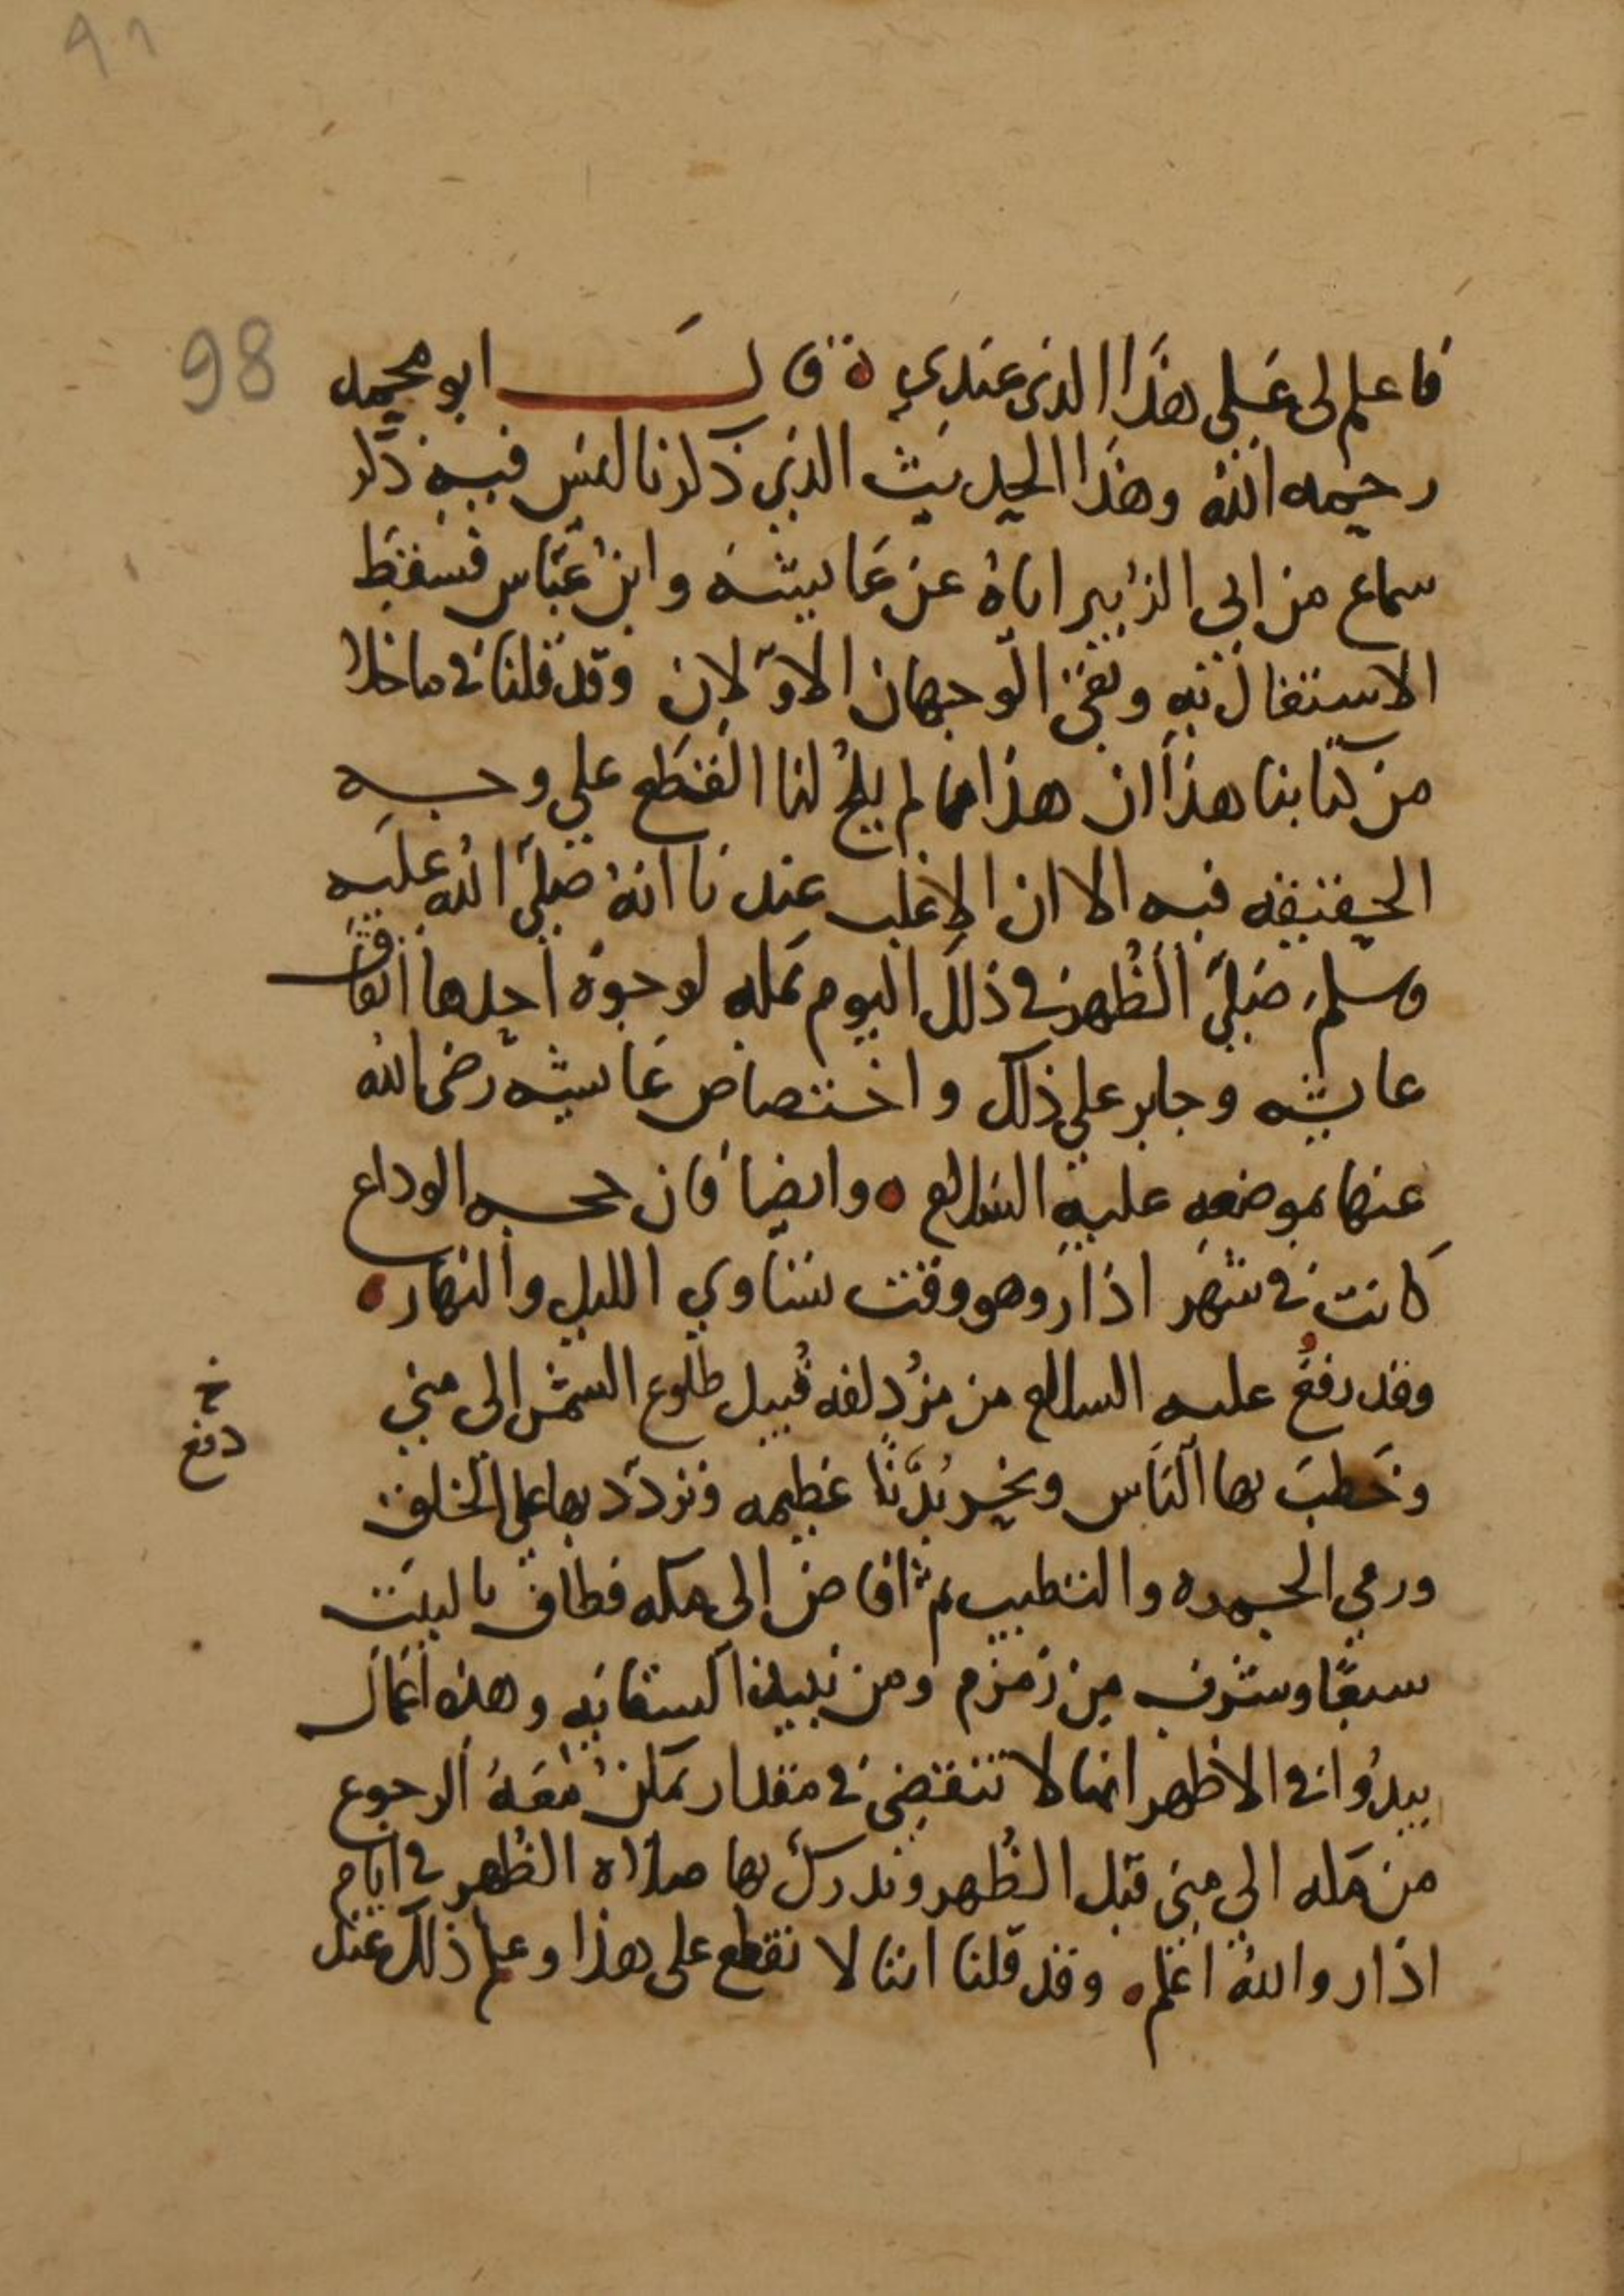 98
فاعلم لى على هذا الذى عندي ۞ قال ابو محمد
رحمه الله وهذا الحديث الذي ذكرنا ليس فيه ذكر
سماع من ابي الزبير اياه عن عايشه وابن عباس فسقط
الاشتغال به وبقى الوجهان الاولان وقد قلنا فى ما خلا
من كتابنا هذا ان هذا مما لم يلح لنا القطع على وجه
الحقيقه فيه الا ان الاغلب عندنا انه صلى الله عليه
وسلم صلى الظهر فى ذلك اليوم بمكه لوجوه احدها اتفاق
عايشه وجابر على ذلك واختصاص عايشه رضى الله
عنها بموضعه عليه السلام ۞ وايضا فان حجه الوداع
كانت فى شهر اذار وهو وقت تساوي الليل والنهار ۞
وقد رفع عليه السلام من مزدلفه قبيل طلوع الشمس الى منى
خ
دفع
وخطب بها الناس ونحر بدنا عظيمه وتردد بها على الخلق
ورمي الجمره والتطيب ثم افاض الى مكه فطاف بالبيت
سبعا وشرب من زمزم ومن نبيذ السقايه وهذه اعمال
يبدوا فى الاظهر انها لا تنقضى فى مقدار يمكن معه الرجوع
من مكه الى منى قبل الظهر ويدرك بها صلاه الظهر فى ايام
اذار والله اعلم ۞ وقد قلنا اننا لا نقطع على هذا وعلم ذلك عند